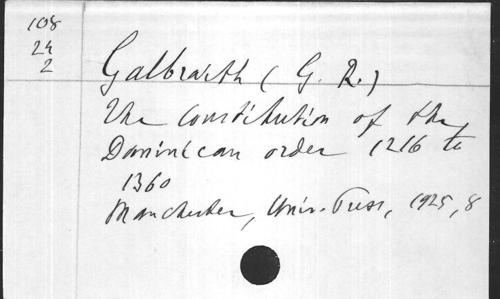 108
24
2
Galbraith (G. R.)
The constitution of the
Dominican order 1216 to
1360
Manchester, Univ. Press, 1925, 8